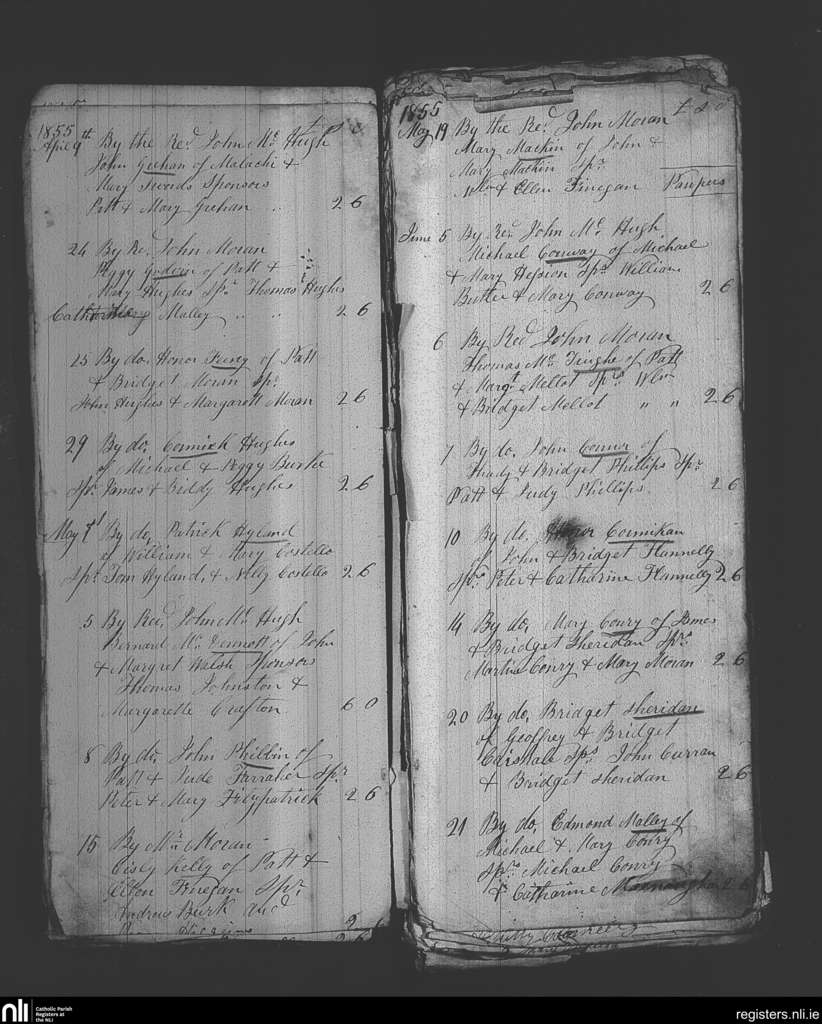 1855
April 9th By the Revd John Mc Hugh
John Geehan of Malachi &
Mary Swords Sponsors
Patt & Mary Geehan " 2 6
24 By Re. John Moran
Peggy Godwin of Patt &
Mary Hughes Spr Thomas Hughes
Cath Malley " " 2 6
25 By do. Honor Feeny of Patt
& Bridget Moran Spr
John Hughes & Margarett Moran 2 6
29 By do, Cormick Hughes
of Michael & Peggy Burke
Spr James & Biddy Hughes 2 6
May 1st By do, Patrick Hyland
of William & Mary Costello
Spr Tom Hyland, & Nelly Costello 2 6
5 By Revd John Mc Hugh
Bernard Mc Dermott of John
& Margret Walsh Sponsors
Thomas Johnston &
Margarette Crafton 6 0
8 By do, John Philbin of
Patt & Jude Farraher Spr
Peter & Mary Fitzpatrick 2 6
15 By Mr Moran
Cisly Kelly of Patt &
Ellen Finegan Spr
Andrew Burk and
Higgins 2
1855 £ s d
May 19 By the Revd John Moran
Mary Mackin of John &
Mary Mackin Spr
Wm & Ellen Finegan Paupers
June 5 By Revd John Mc Hugh
Michael Conway of Michael
& Mary Hession Spr William
Butler & Mary Conway 2 6
6 By Revd John Moran
Thomas Mc Tinghe of Patt
& Margt Mellot Sprs Wm
& Bridget Mellot " " 2 6
7 By do, John Connor of
Thady & Bridget Phillips Spr
Patt & Judy Phillips 2 6
10 By do. Honor Cormikan
of John & Bridget Flannelly
Sprs Peter & Catharine Flannelly 2 6
14 By do, Mary Conry of James
& Bridget Sheridan Sprs
Martin Conry & Mary Moran 2 6
20 By do, Bridget Sheridan
of Geoffrey & Bridget
Sprs John Curran
& Bridget Sheridan 2 6
21 By do, Edmond Malley of
Michael & Mary Conry
Sprs Michael Conry
& Catharine 2 6
nli
Catholic Parish
Registers at
the NLI
registers.nli.ie